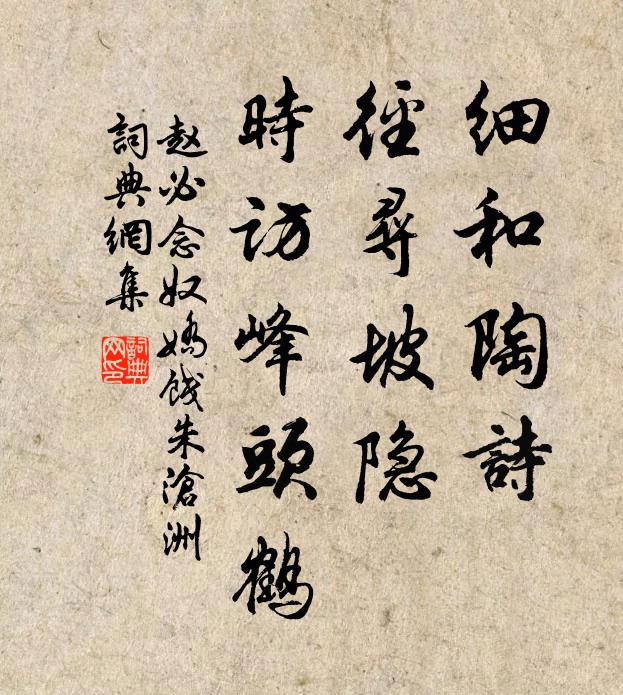 细和陶詩
徑尋坡隐
時访峰頭鶴
赵必念奴嬌餞朱滄洲
詞典網集
詞典
网印